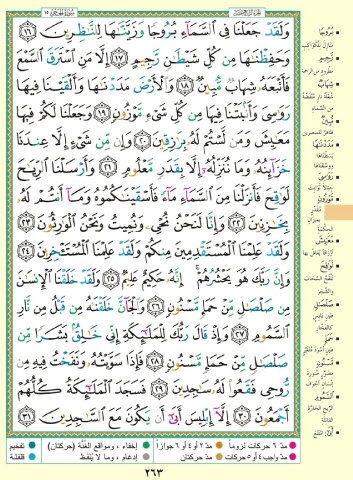 سورة الحجر ١٥
الجزء الرابع عشر
وَلَقَدْ جَعَلْنَا فِي السَّمَاءِ بُرُوجًا وَزَيَّنَّاهَا لِلنَّاظِرِينَ ﴿١٦﴾
وَحَفِظْنَاهَا مِن كُلِّ شَيْطَانٍ رَّجِيمٍ ﴿١٧﴾ إِلَّا مَنِ اسْتَرَقَ السَّمْعَ
فَأَتْبَعَهُ شِهَابٌ مُّبِينٌ ﴿١٨﴾ وَالْأَرْضَ مَدَدْنَاهَا وَأَلْقَيْنَا فِيهَا
رَوَاسِيَ وَأَنبَتْنَا فِيهَا مِن كُلِّ شَيْءٍ مَّوْزُونٍ ﴿١٩﴾ وَجَعَلْنَا لَكُمْ فِيهَا
مَعَايِشَ وَمَن لَّسْتُمْ لَهُ بِرَازِقِينَ ﴿٢٠﴾ وَإِن مِّن شَيْءٍ إِلَّا عِندَنَا
خَزَائِنُهُ وَمَا نُنَزِّلُهُ إِلَّا بِقَدَرٍ مَّعْلُومٍ ﴿٢١﴾ وَأَرْسَلْنَا الرِّيَاحَ
لَوَاقِحَ فَأَنزَلْنَا مِنَ السَّمَاءِ مَاءً فَأَسْقَيْنَاكُمُوهُ وَمَا أَنتُمْ لَهُ
بِخَازِنِينَ ﴿٢٢﴾ وَإِنَّا لَنَحْنُ نُحْيِي وَنُمِيتُ وَنَحْنُ الْوَارِثُونَ ﴿٢٣﴾
وَلَقَدْ عَلِمْنَا الْمُسْتَقْدِمِينَ مِنكُمْ وَلَقَدْ عَلِمْنَا الْمُسْتَأْخِرِينَ ﴿٢٤﴾
وَإِنَّ رَبَّكَ هُوَ يَحْشُرُهُمْ إِنَّهُ حَكِيمٌ عَلِيمٌ ﴿٢٥﴾ وَلَقَدْ خَلَقْنَا الْإِنسَانَ
مِن صَلْصَالٍ مِّنْ حَمَإٍ مَّسْنُونٍ ﴿٢٦﴾ وَالْجَانَّ خَلَقْنَاهُ مِن قَبْلُ مِن نَّارِ
السَّمُومِ ﴿٢٧﴾ وَإِذْ قَالَ رَبُّكَ لِلْمَلَائِكَةِ إِنِّي خَالِقٌ بَشَرًا مِّن
صَلْصَالٍ مِّنْ حَمَإٍ مَّسْنُونٍ ﴿٢٨﴾ فَإِذَا سَوَّيْتُهُ وَنَفَخْتُ فِيهِ مِن
رُّوحِي فَقَعُوا لَهُ سَاجِدِينَ ﴿٢٩﴾ فَسَجَدَ الْمَلَائِكَةُ كُلُّهُمْ
أَجْمَعُونَ ﴿٣٠﴾ إِلَّا إِبْلِيسَ أَبَىٰ أَن يَكُونَ مَعَ السَّاجِدِينَ ﴿٣١﴾
بُرُوجًا
منازل للكواكب
رَجِيمٍ
مطرود من الرحمة
شِهَابٌ
من السماء
مُبِينٌ
ظاهر للمبصرين
مَدَدْنَاهَا
بسطناها
رَوَاسِيَ
جبالاً ثوابت
مَوْزُونٍ
مَعَايِشَ
أرزاقاً يعاش بها
لَوَاقِحَ
صَلْصَالٍ
حَمَإٍ
مَسْنُونٍ
السَّمُومِ
أَبَىٰ: امتنع
مدّ ٦ حركات لزوماً
مدّ ٢ أو ٤ أو ٦ جوازاً
إخفاء، ومواقع الغُنّة (حركتان)
تفخيم
مدّ واجب ٤ أو ٥ حركات
مدّ حركتان
إدغام، وما لا يُلفَظ
قلقلة
٢٦٣